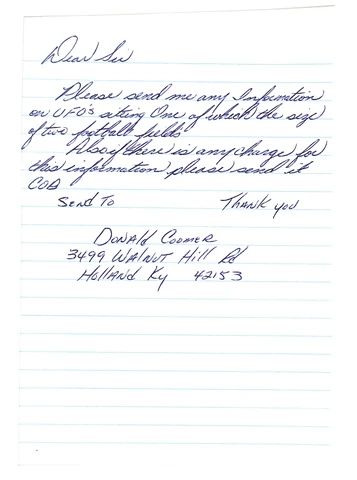 Dear Sir
Please send me any Information
on UFO's siting One of which the size
of two football fields
Also if there is any charge for
this information please send it
COD
Send To Thank you
Donald Coomer
3499 Walnut Hill Rd
Holland Ky 42153